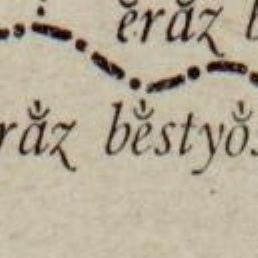 ĕrăz b
răz bĕstyŏs